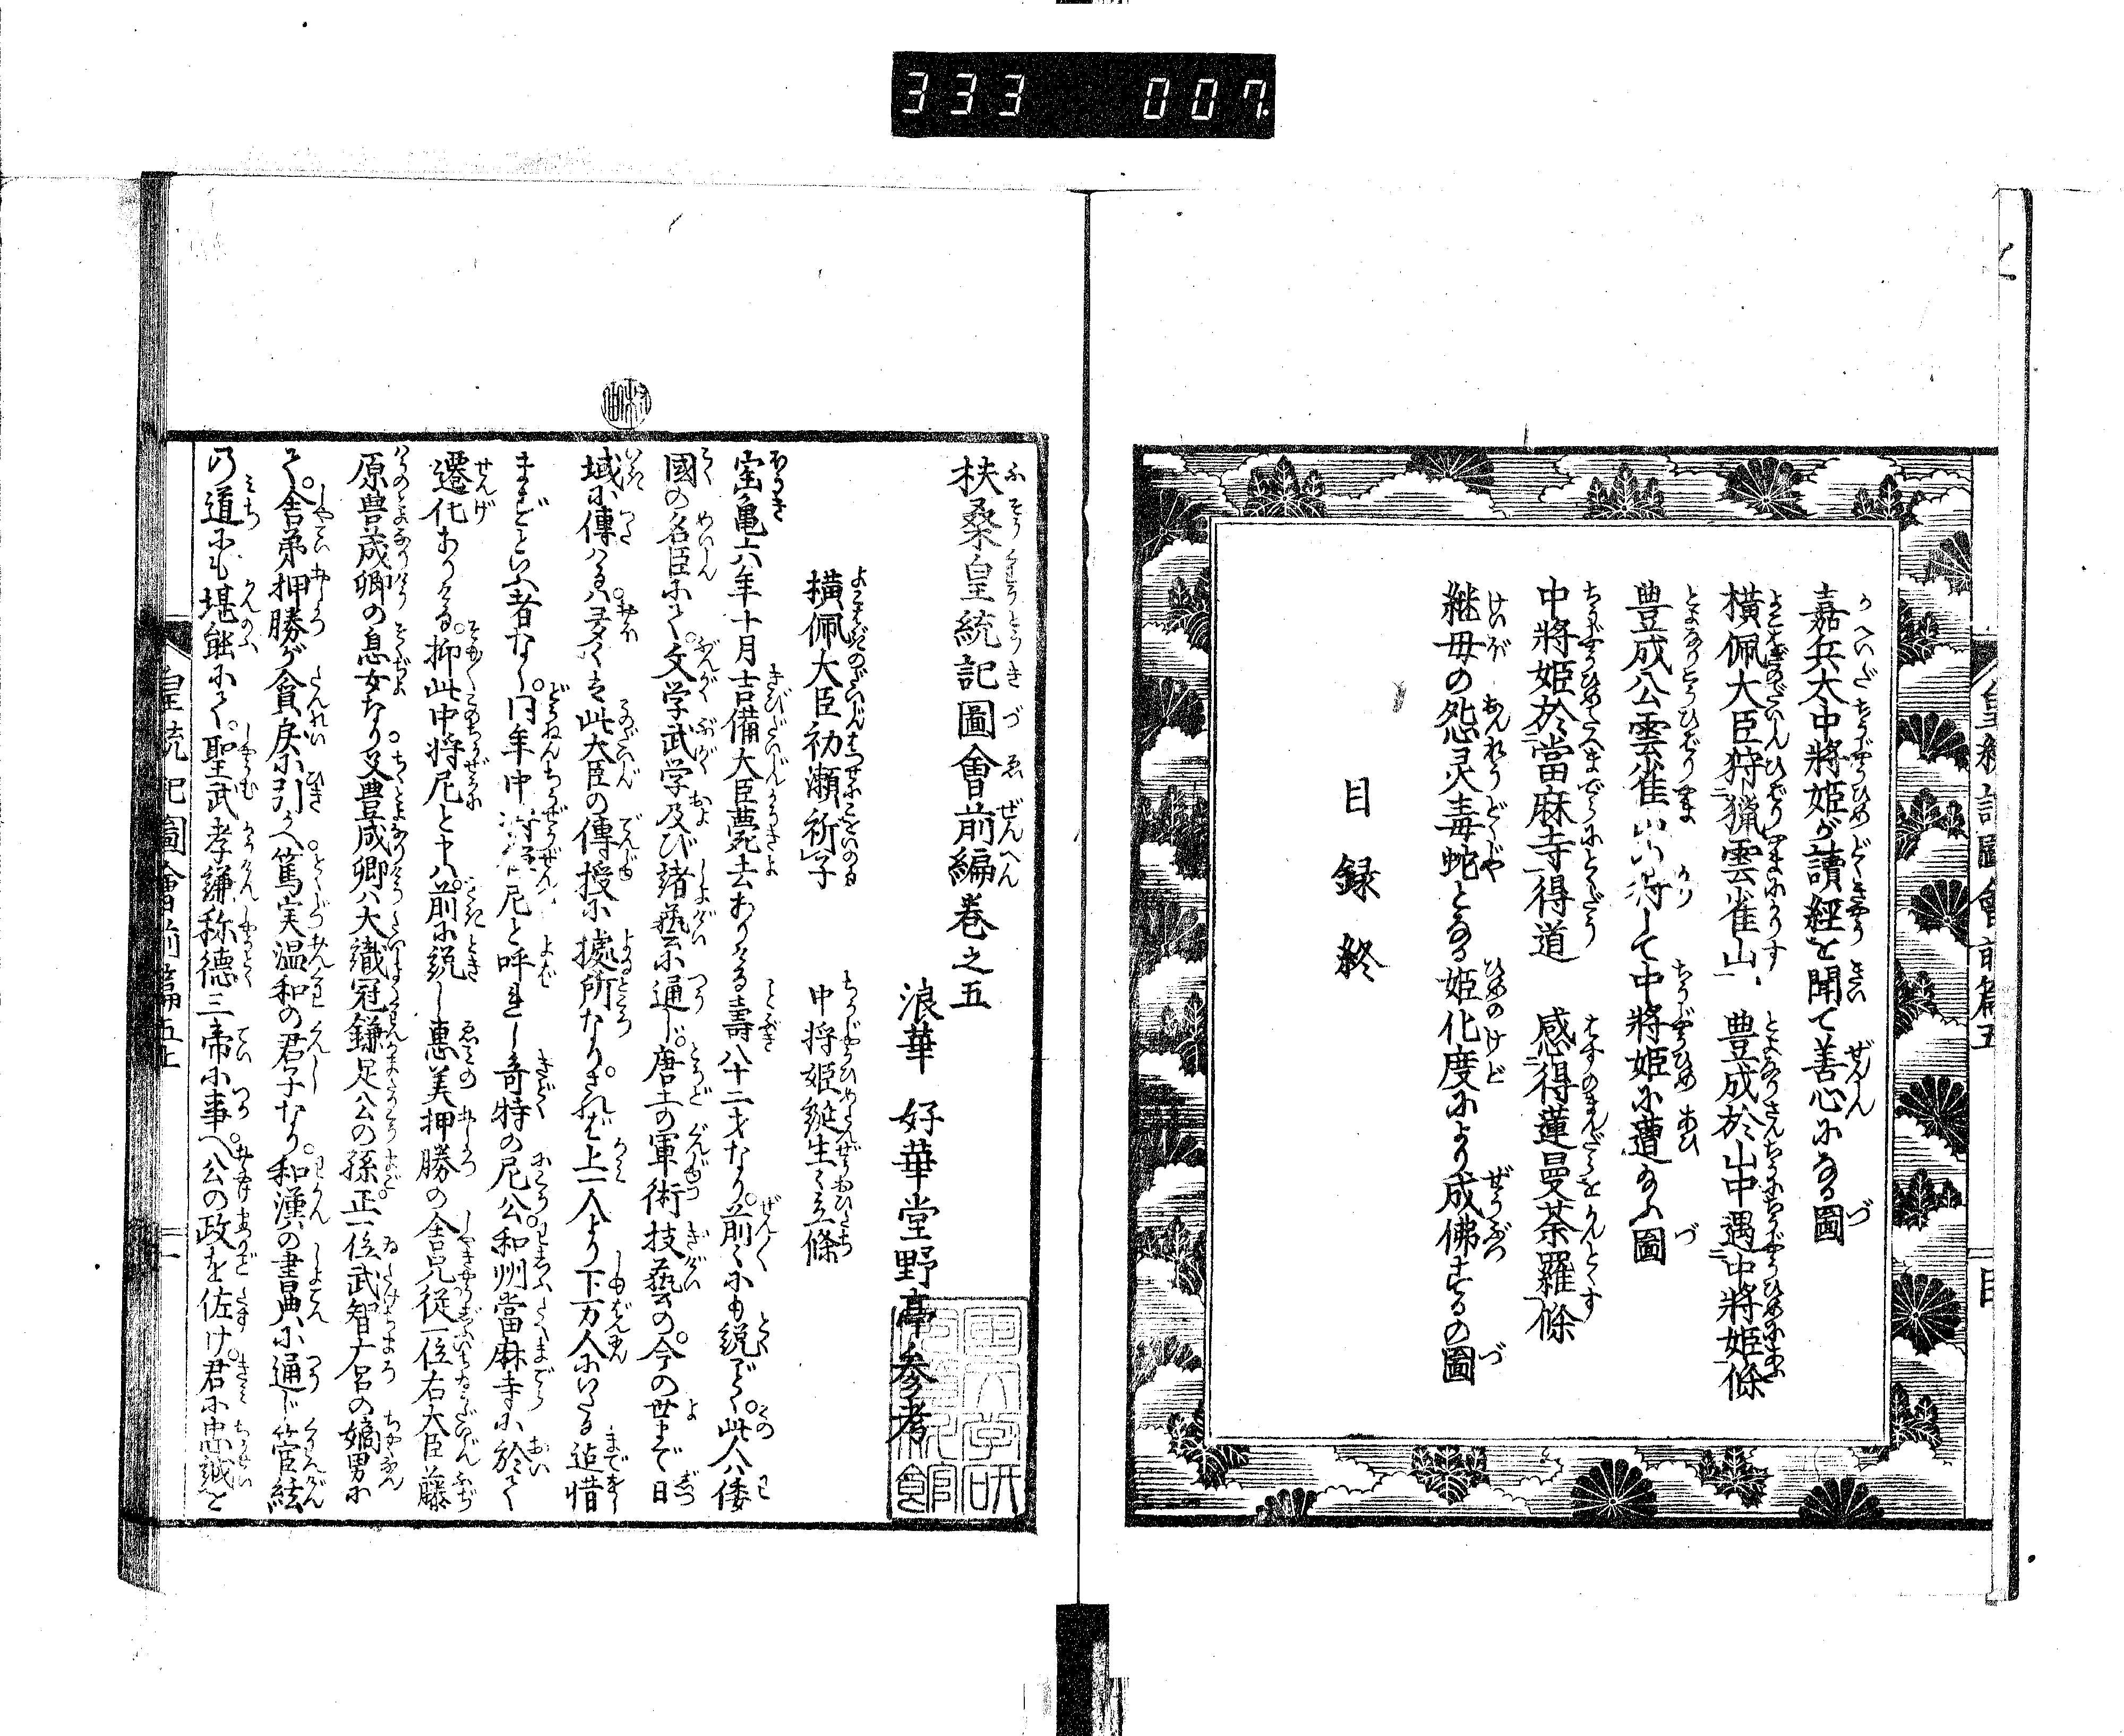 333 007
嘉兵太中將姫が讀經を聞て善心になる圖
横佩大臣狩獵雲雀山 豊成於山中遇中將姫條
豊成公雲雀山に狩して中將姫に遭給ふ圖
中將姫於當麻寺得道 感得蓮曼荼羅條
継母の怨灵毒蛇となる姫化度により成佛するの圖
目録終
扶桑皇統記圖會前編巻之五
浪華 好華堂野亭参考
横佩大臣初瀬祈子 中將姫誕生之條
宝亀六年十月吉備大臣薨去ありける壽八十二才なり。前々にも説ごとく。此人ハ倭
國の名臣にて。文学武学及び諸藝に通じ。唐土の軍術技藝の。今の世まで日
域に傳ハるハ。多くは此大臣の傳授に據所なり。されバ上一人より下万人にいたる迄惜
まずといふ者なし。同年中將尼と呼れし奇特の尼公。和州當麻寺に於て
遷化ありける。抑此中將尼と申ハ。前に説し恵美押勝の舎兄従一位右大臣藤
原豊成卿の息女なり。父豊成卿ハ大織冠鎌足公の孫。正一位武智麻呂の嫡男に
て。舎弟押勝が貪戻に引かへ。篤実温和の君子なり。和漢の書典に通じ管絃
の道にも堪能にて。聖武孝謙称徳三帝に事へ。公の政を佐け。君に忠誠を
皇統記圖會前編五上